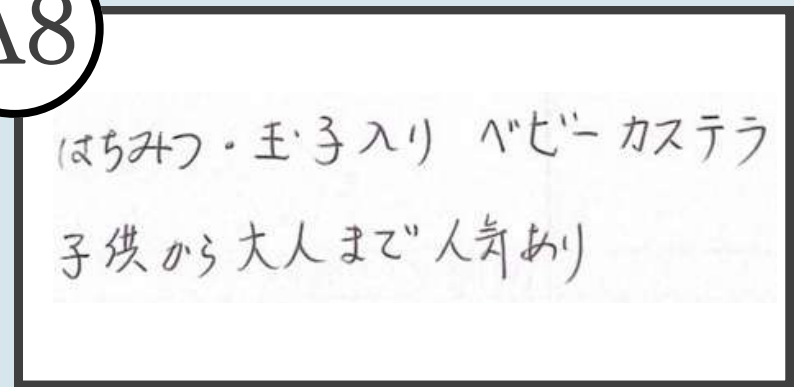 A8
はちみつ・玉子入り ベビーカステラ
子供から大人まで人気あり